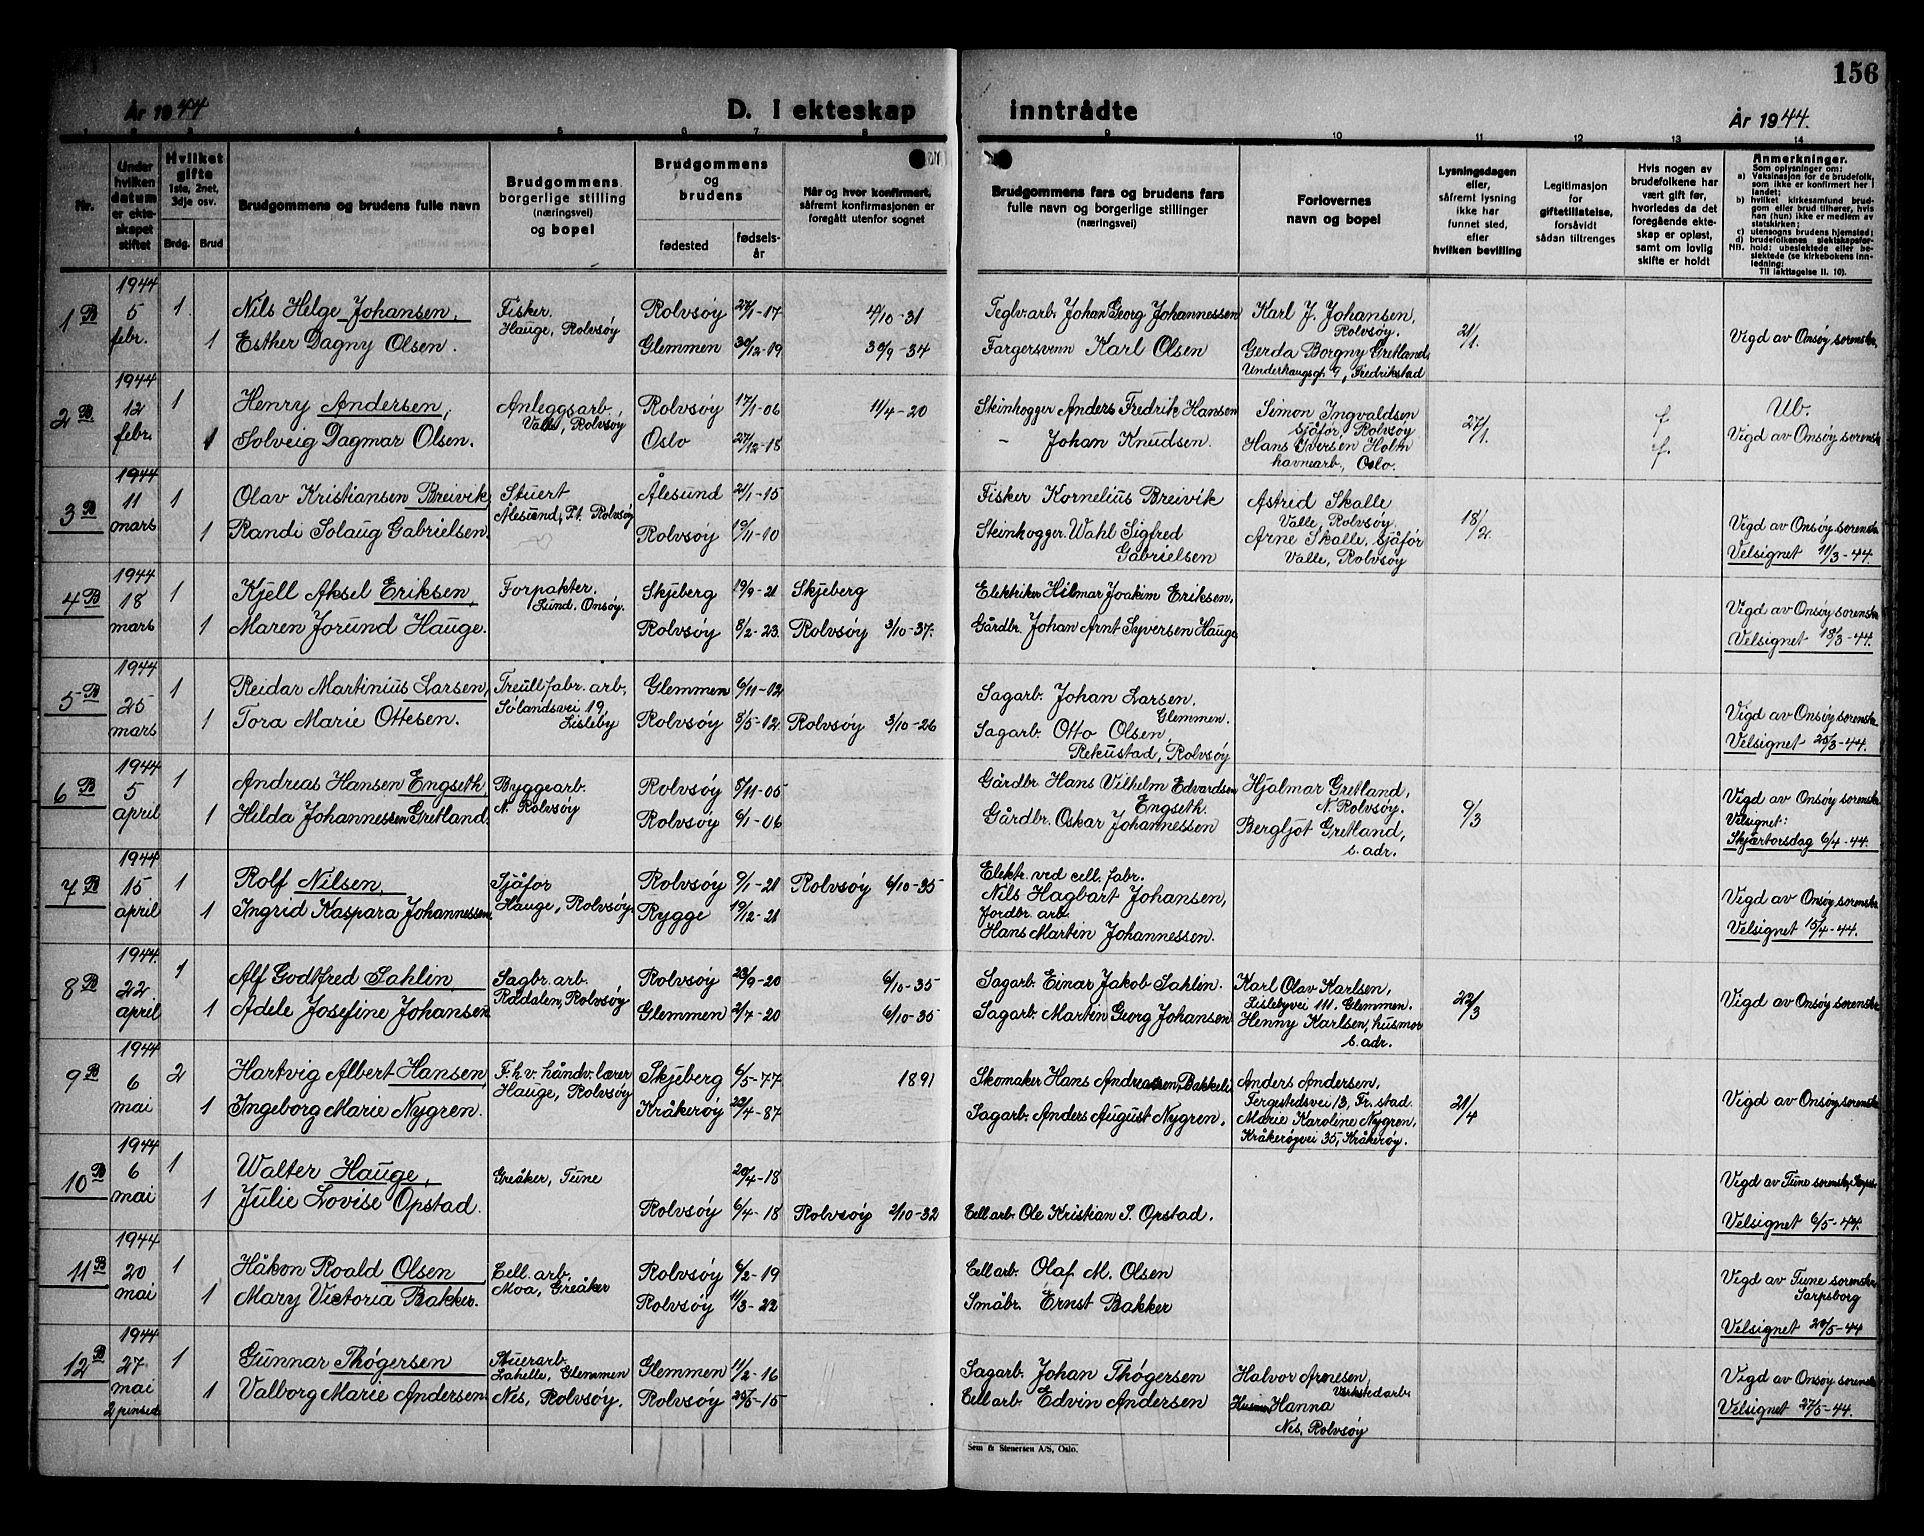 156
År 1944
D. I ekteskap inntrådte
År 1944.
1 2 3 4 5 6 7 8 9 10 11 12 13 14
Nr.
Under hvilken datum er ekteskapet stiftet
Hvilket gifte 1ste, 2net, 3dje osv.
Brdg. Brud
Brudgommens og brudens fulle navn
Brudgommens borgerlige stilling (næringsvei) og bopel
Brudgommens og brudens
fødested
fødselsår
Når og hvor konfirmert, såfremt konfirmasjonen er foregått utenfor sognet
Brudgommens fars og brudens fars fulle navn og borgerlige stillinger (næringsvei)
Forlovernes navn og bopel
Lysningsdagen eller, såfremt lysning ikke har funnet sted, efter hvilken bevilling
Legitimasjon for giftetillatelse, forsåvidt sådan tiltrenges
Hvis nogen av brudefolkene har vært gift før, hvorledes da det foregående ekteskap er opløst, samt om lovlig skifte er holdt
Anmerkninger.
Som oplysninger om:
a) Vaksinasjon for de brudefolk, som ikke er konfirmert her i landet;
b) hvilket kirkesamfund brudgom eller brud tilhører, hvis han (hun) ikke er medlem av statskirken;
c) utensogns brudens hjemsted;
d) brudefolkenes slektskapsforhold: ubeslektede eller beslektede (se kirkebokens innledning;
NB.
Til iakttagelse II. 10).
1 B 1944 5 febr. 1 Nils Helge Johansen, Fisker. Hauge, Rolvsøy Rolvsøy 27/1-17 4/10-31 Teglv.arb. Johan Georg Johannessen Karl J. Johansen, Rolvsøy. 21/1. Vigd av Onsøy sorenskr.
1 Esther Dagny Olsen. Glemmen 30/12-19 30/9-34 Fargersvenn Karl Olsen Gerda Borgny Gretland, Underhaugsgt 9, Fredrikstad
2 B. 1944 12 febr. 1 Henry Andersen, Anleggsarb. Valle, Rolvsøy Rolvsøy 17/1-06 11/4-20 Steinhogger Anders Fredrik Hansen Simon Ingvaldsen sjåfør, Rolvsøy 27/1. f Ub.
1 Solveig Dagmar Olsen. Oslo 27/12-18 - Johan Knudsen. Hans Iversen Holm havnearb., Oslo. f. Vigd av Onsøy sorensk
3 B 1944 11 mars 1 Olav Kristiansen Breivik, Stuert Ålesund, P.t. Rolvsøy Ålesund 21/1-15 Fisker Kornelius Breivik Astrid Skalle Valle, Rolvsøy 18/2
1 Randi Solaug Gabrielsen. Rolvsøy 19/11-10 Steinhogger Wahl Sigfred Gabrielsen Arne Skalle, sjåfør Valle, Rolvsøy Vigd av Onsøy sorensk Velsignet 11/3-44.
4 B 1944 18 mars 1 Kjell Aksel Eriksen, Forpakter. Lund. Onsøy. Skjeberg 19/9-21 Skjeberg Elektriker Hilmar Joakim Eriksen, Vigd av Onsøy sorenskr
1 Maren Jorund Hauge. Rolvsøy 8/2-23. Rolvsøy 3/10-37. Gårdbr. Johan Arnt Syversen Hauge Velsignet 18/3-44.
5 B 1944 25 mars 1 Reidar Martinius Larsen, Treullfabr. arb, Sølandsvei 19, Lisleby Glemmen 6/11-02 Sagarb. Johan Larsen, Glemmen.
1 Tora Marie Ottesen. Rolvsøy 8/5-12. Rolvsøy 3/10-26 Sagarb. Otto Olsen, Rekustad, Rolvsøy Vigd av Onsøy sorensk Velsignet 25/3-44.
6 B 1944 5 april 1 Andreas Hansen Engseth Byggearb. N. Rolvsøy Rolvsøy 8/11-05 Gårdbr. Hans Vilhelm Edvardsen Engseth. Hjalmar Gretland, N. Rolvsøy. 9/3 Vigd av Onsøy sorensk
1 Hilda Johannessen Gretland. Rolvsøy 6/1-06 Gårdbr. Oskar Johannessen Bergljot Gretland, s. adr. Velsignet: Skjærtorsdag 6/4-44.
7 B 1944 15 april 1 Rolf Nilsen, Sjåfør Hauge, Rolvsøy Rolvsøy 9/1-21 Rolvsøy 6/10-35 Elektr. ved cell. fabr. Nils Hagbart Johansen, Vigd av Onsøy sorenskr
1 Ingrid Kaspara Johannessen. Rygge 19/12-21 Jordbr. arb. Hans Martin Johannessen. Velsignet 15/4-44.
8 B 1944. 22 april 1 Alf Godtfred Sahlin Sagbr. arb. Rådalen, Rolvsøy Rolvsøy 23/9-20 6/10-35 Sagarb. Einar Jakob Sahlin. Karl Olav Karlsen, Lislebyvei 111. Glemmen. 22/3 Vigd av Onsøy sorenskr
1 Adele Josefine Johansen. Glemmen 2/7-20 6/10-35 Sagarb. Martin Georg Johansen Henny Karlsen, husmor s. adr.
9 B 1944 6 mai 2 Hartvig Albert Hansen, F.h.v. håndv. lærer Hauge, Rolvsøy Skjeberg 6/5-77 1891 Skomaker Hans Andreassen, Bakkeli Anders Andersen, Tergestedsvei 13, Fr.stad. 21/4 Vigd av Onsøy sorenskr
1 Ingeborg Marie Nygren. Kråkerøy 22/4-87 Sagarb. Anders August Nygren. Marie Karoline Nygren, Kråkerøyvei 35, Kråkerøy.
10 B 1944 6 mai 1 Walter Hauge, Greåker, Tune 20/4-18 Vigd av Tune sorensk, Sarpsb.
1 Julie Lovise Opstad. Rolvsøy 6/4-18 Rolvsøy 2/10-32 Cell arb. Ole Kristian S. Opstad. Velsignet 6/5-44.
11 B 1944 20 mai 1 Håkon Roald Olsen Cell. arb. Moa, Greåker Rolvsøy 6/2-19 Cell arb. Olaf M. Olsen Vigd av Tune sorenskr Sarpsborg
1 Mary Victoria Bakker. Rolvsøy 11/3-22 Småbr. Ernst Bakker Velsignet 20/5-44
12 B 1944 27 mai 2 pinsed. 1 Gunnar Thøgersen Stuerarb. Lahelle, Glemmen Glemmen 11/2-16 Sagarb. Johan Thøgersen Halvor Arnesen, Verkstedarb. Vigd av Onsøy sorensk
1 Valborg Marie Andersen. Nes, Rolvsøy. Rolvsøy 20/5-15 Cell arb. Edvin Andersen Husmor Hanna Nes, Rolvsøy Velsignet 27/5-44.
Sem & Stenersen A/S, Oslo.